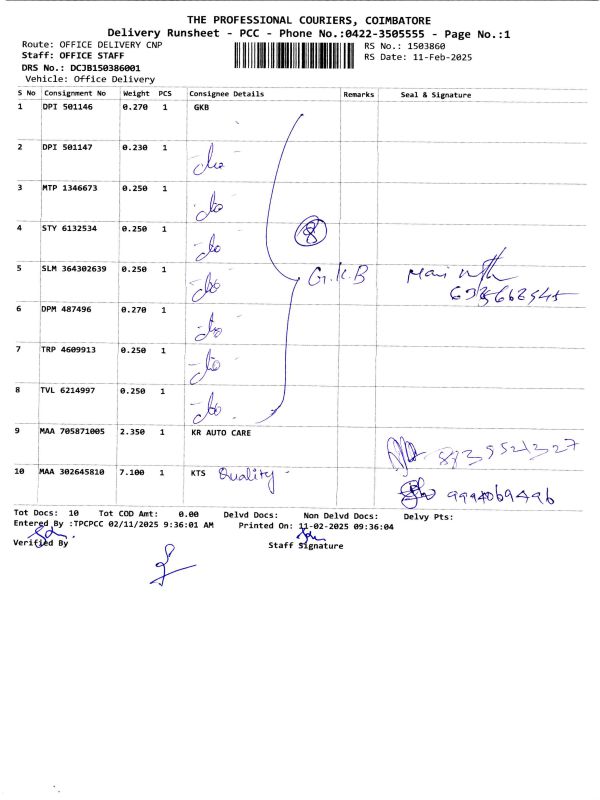 THE PROFESSIONAL COURIERS, COIMBATORE
Delivery Runsheet - PCC - Phone No.:0422-3505555 - Page No.:1
Route: OFFICE DELIVERY CNP RS No.: 1503860
Staff: OFFICE STAFF RS Date: 11-Feb-2025
DRS No.: DCJB150386001
Vehicle: Office Delivery
S No Consignment No Weight PCS Consignee Details Remarks Seal & Signature
1 DPI 501146 0.270 1 GKB
2 DPI 501147 0.230 1 -do-
3 MTP 1346673 0.250 1 -do-
4 STY 6132534 0.250 1 -do- 8
5 SLM 364302639 0.250 1 -do- G.K.B
6 DPM 487496 0.270 1 -do-
7 TRP 4609913 0.250 1 -do-
8 TVL 6214997 0.250 1 -do-
9 MAA 705871005 2.350 1 KR AUTO CARE
10 MAA 302645810 7.100 1 KTS Quality - 9994069496
Tot Docs: 10 Tot COD Amt: 0.00 Delvd Docs: Non Delvd Docs: Delvy Pts:
Entered By :TPCPCC 02/11/2025 9:36:01 AM Printed On: 11-02-2025 09:36:04
Verified By Staff Signature